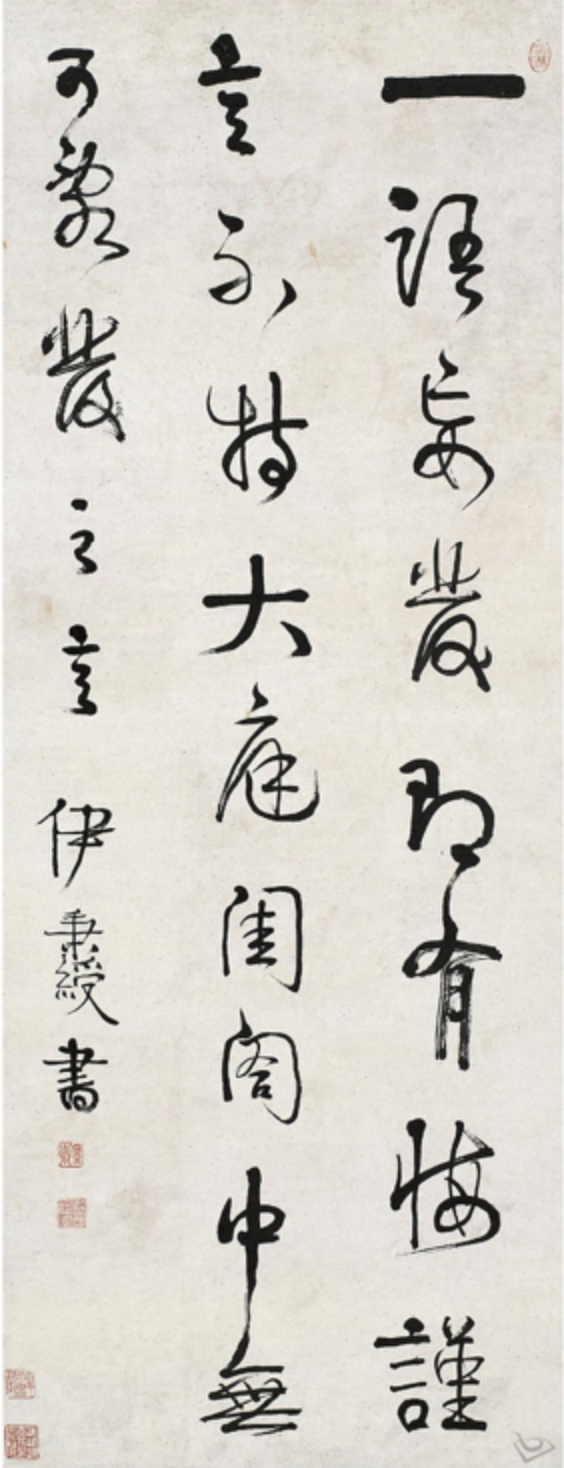 一語妄發即有悔謹
言不特大庭閨閣中無
可發之言 伊秉綬書